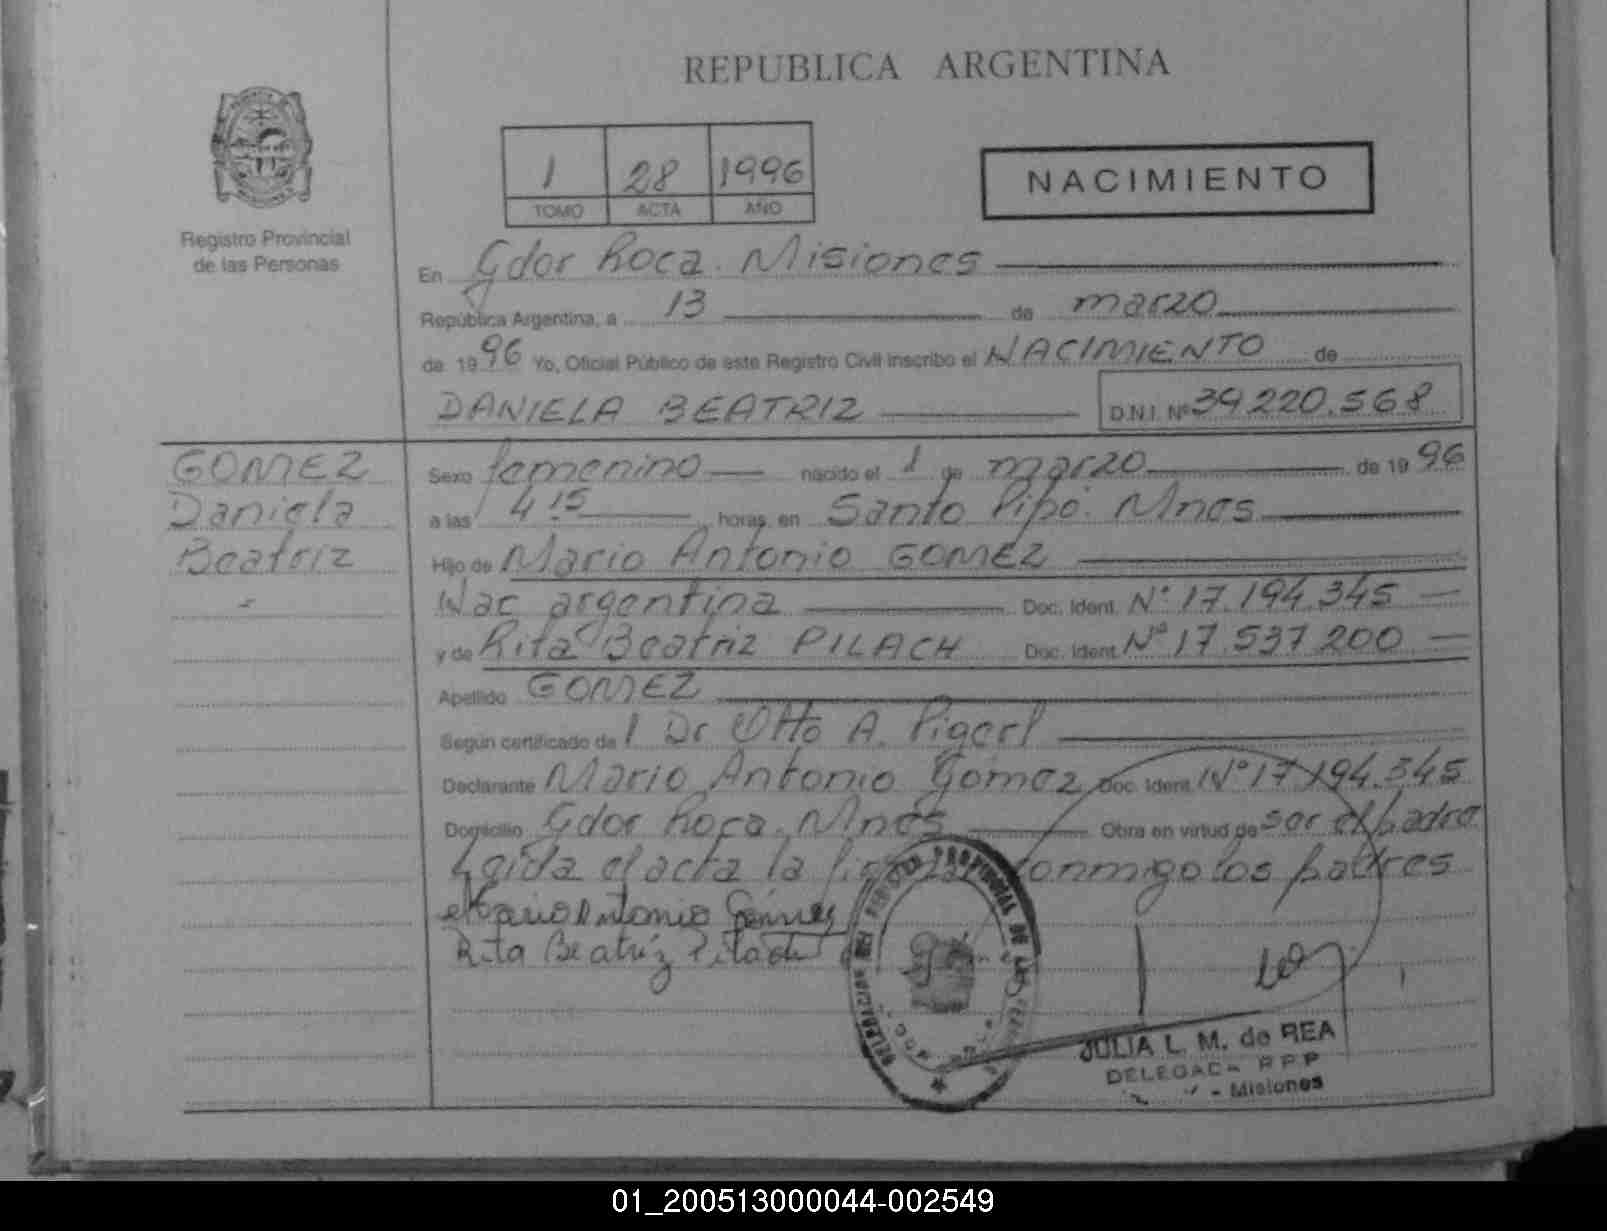 REPUBLICA ARGENTINA
Registro Provincial
de las Personas
1 28 1996
TOMO ACTA AÑO
NACIMIENTO
En Gdor Roca. Misiones
República Argentina, a 13 de marzo
de 1996 Yo, Oficial Público de este Registro Civil inscribo el NACIMIENTO de
DANIELA BEATRIZ D.N.I. Nº 39.220.568
GOMEZ
Daniela
Beatriz
Sexo femenino nacido el 1 de marzo de 1996
a las 4 15 horas, en Santo Pipó. Mnes
Hijo de Mario Antonio GOMEZ
Nac argentina Doc. Ident. Nº 17.194.345
y de Rita Beatriz PILACH Doc. Ident. Nº 17.537.200
Apellido GOMEZ
Según certificado de l Dr Otto A. Pigerl
Declarante Mario Antonio Gomez Doc. Ident. Nº 17.194.345
Domicilio Gdor Roca. Mnes Obra en virtud de ser el padre
Leida el acta la conmigo los padres
Mario Antonio Gómez
Rita Beatriz Pilach
JULIA L. M. de REA
R P P
- Misiones
01_200513000044-002549